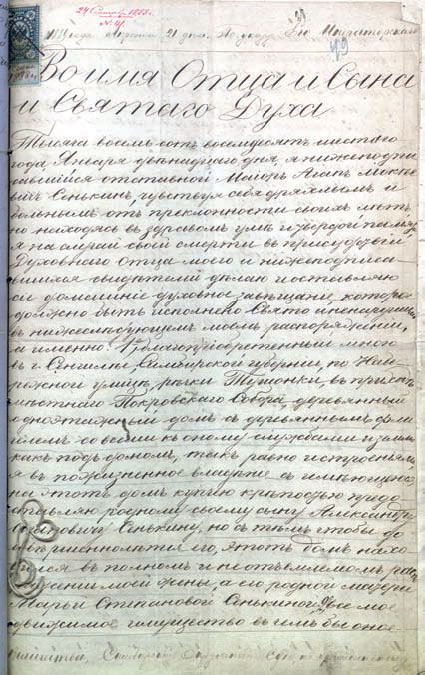 24 Сентяб. 1888 г.
года Апреля 21 дня. По указу Его Императорскаго
49
Во имя Отца и Сына
и Святаго Духа
Тысяча восемьсотъ восемьдесятъ шестаго
года Января двенадцатаго дня, я нижеподпи
савшийся отставной Маіоръ Агапъ
вичъ Сенькинъ, чувствуя себя дряхлымъ и
больнымъ отъ преклонности своихъ летъ
но находясь въ здравомъ уме и твердой памяти
я на случай своей смерти въ присутствіи
Духовнаго Отца моего и нижеподписа
вшихся свидетелей делаю и оставляю
сіе домашнее духовное завещаніе, которое
должно быть исполнено Свято и ненарушимо
въ нижеследующемъ моемъ распоряженіи,
а именно: Благопріобретенный мною
въ г. Сенгилее, Симбирской губерніи, по Набе
режной улице, речки Тушонки, въ приходе
местнаго Покровскаго Собора, деревянный
одноэтажный домъ съ деревяннымъ фли
гелемъ со всеми къ оному службами и землею
какъ подъ домомъ, такъ равно и строеніями
я въ пожизненное владеніе съ имеющеюся
на этотъ домъ купчею крепостью предо
ставляю родному своему сыну Александру
Агаповичу Сенькину, но съ темъ чтобы до
его, этотъ домъ нахо
дился въ полномъ и неотъемлемомъ рас
поряженіи моей жены, а его родной матери
Марьи Степановой Сенькиной, все мое
движимое имущество въ чемъ бы оное